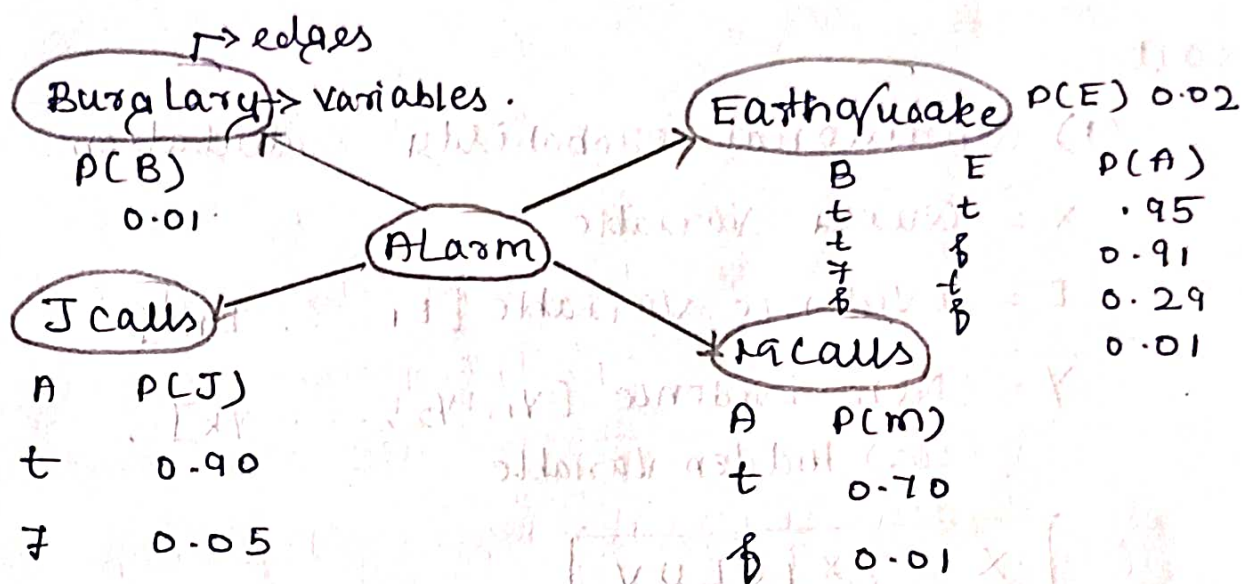 edges
Burglary → variables.
P(B)
0.01
Earthquaake P(E) 0.02
B E P(A)
t t .95
t f 0.91
f t 0.29
f f 0.01
ALarm
J calls
A P(J)
t 0.90
f 0.05
calls
A P(m)
t 0.70
f 0.01